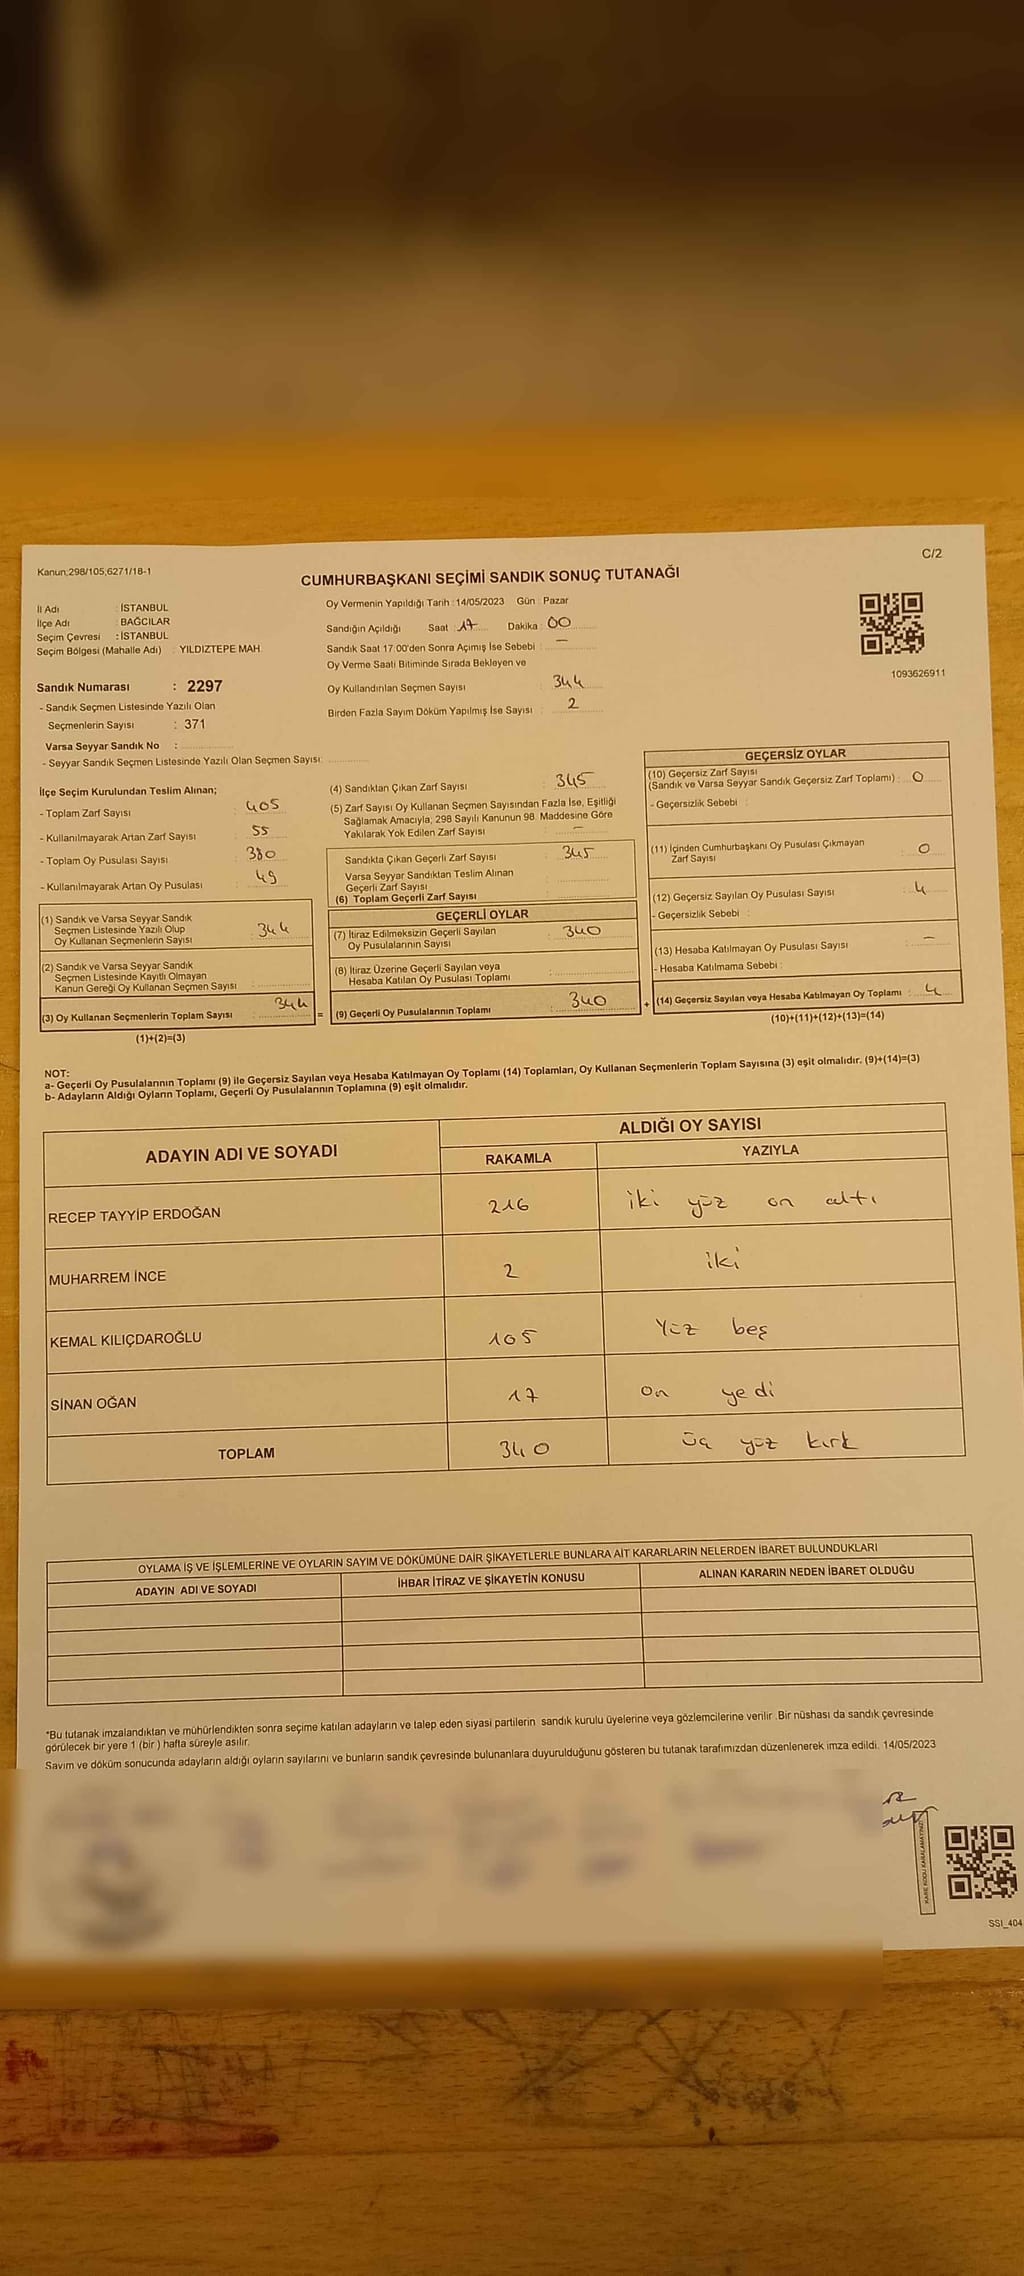 C/2
Kanun;298/105,6271/18-1
CUMHURBAŞKANI SEÇİMİ SANDIK SONUÇ TUTANAĞI
İl Adı : İSTANBUL
İlçe Adı : BAĞCILAR
Seçim Çevresi : İSTANBUL
Seçim Bölgesi (Mahalle Adı) : YILDIZTEPE MAH.
Oy Vermenin Yapıldığı Tarih :14/05/2023 Gün : Pazar
Sandığın Açıldığı Saat : 17 Dakika : 00
Sandık Saat 17:00'den Sonra Açımış İse Sebebi : —
Oy Verme Saati Bitiminde Sırada Bekleyen ve
Oy Kullandırılan Seçmen Sayısı : 344
Birden Fazla Sayım Döküm Yapılmış İse Sayısı : 2
1093626911
Sandık Numarası : 2297
- Sandık Seçmen Listesinde Yazılı Olan
Seçmenlerin Sayısı : 371
Varsa Seyyar Sandık No :
- Seyyar Sandık Seçmen Listesinde Yazılı Olan Seçmen Sayısı:
İlçe Seçim Kurulundan Teslim Alınan;
- Toplam Zarf Sayısı : 405
- Kullanılmayarak Artan Zarf Sayısı : 55
- Toplam Oy Pusulası Sayısı : 380
- Kullanılmayarak Artan Oy Pusulası : 49
(1) Sandık ve Varsa Seyyar Sandık
Seçmen Listesinde Yazılı Olup
Oy Kullanan Seçmenlerin Sayısı : 344
(2) Sandık ve Varsa Seyyar Sandık
Seçmen Listesinde Kayıtlı Olmayan
Kanun Gereği Oy Kullanan Seçmen Sayısı :
(3) Oy Kullanan Seçmenlerin Toplam Sayısı : 344
(1)+(2)=(3)
(4) Sandıktan Çıkan Zarf Sayısı : 345
(5) Zarf Sayısı Oy Kullanan Seçmen Sayısından Fazla İse, Eşitliği
Sağlamak Amacıyla, 298 Sayılı Kanunun 98. Maddesine Göre
Yakılarak Yok Edilen Zarf Sayısı : —
Sandıkta Çıkan Geçerli Zarf Sayısı : 345
Varsa Seyyar Sandıktan Teslim Alınan
Geçerli Zarf Sayısı
(6) Toplam Geçerli Zarf Sayısı :
GEÇERLİ OYLAR
(7) İtiraz Edilmeksizin Geçerli Sayılan
Oy Pusulalarının Sayısı : 340
(8) İtiraz Üzerine Geçerli Sayılan veya
Hesaba Katılan Oy Pusulası Toplamı :
= (9) Geçerli Oy Pusulalarının Toplamı : 340
GEÇERSİZ OYLAR
(10) Geçersiz Zarf Sayısı
(Sandık ve Varsa Seyyar Sandık Geçersiz Zarf Toplamı) : 0
- Geçersizlik Sebebi :
(11) İçinden Cumhurbaşkanı Oy Pusulası Çıkmayan
Zarf Sayısı : 0
(12) Geçersiz Sayılan Oy Pusulası Sayısı : 4
- Geçersizlik Sebebi :
(13) Hesaba Katılmayan Oy Pusulası Sayısı : —
- Hesaba Katılmama Sebebi :
+ (14) Geçersiz Sayılan veya Hesaba Katılmayan Oy Toplamı : 4
(10)+(11)+(12)+(13)=(14)
NOT:
a- Geçerli Oy Pusulalarının Toplamı (9) ile Geçersiz Sayılan veya Hesaba Katılmayan Oy Toplamı (14) Toplamları, Oy Kullanan Seçmenlerin Toplam Sayısına (3) eşit olmalıdır. (9)+(14)=(3)
b- Adayların Aldığı Oyların Toplamı, Geçerli Oy Pusulalarının Toplamına (9) eşit olmalıdır.
ADAYIN ADI VE SOYADI ALDIĞI OY SAYISI
RAKAMLA YAZIYLA
RECEP TAYYİP ERDOĞAN 216 iki yüz on altı
MUHARREM İNCE 2 iki
KEMAL KILIÇDAROĞLU 105 Yüz beş
SİNAN OĞAN 17 On yedi
TOPLAM 340 üç yüz kırk
OYLAMA İŞ VE İŞLEMLERİNE VE OYLARIN SAYIM VE DÖKÜMÜNE DAİR ŞİKAYETLERLE BUNLARA AİT KARARLARIN NELERDEN İBARET BULUNDUKLARI
ADAYIN ADI VE SOYADI İHBAR İTİRAZ VE ŞİKAYETİN KONUSU ALINAN KARARIN NEDEN İBARET OLDUĞU
*Bu tutanak imzalandıktan ve mühürlendikten sonra seçime katılan adayların ve talep eden siyasi partilerin sandık kurulu üyelerine veya gözlemcilerine verilir .Bir nüshası da sandık çevresinde
görülecek bir yere 1 (bir ) hafta süreyle asılır.
Sayım ve döküm sonucunda adayların aldığı oyların sayılarını ve bunların sandık çevresinde bulunanlara duyurulduğunu gösteren bu tutanak tarafımızdan düzenlenerek imza edildi. 14/05/2023
KARE KODU KARALAMAYINIZ
SSI_404